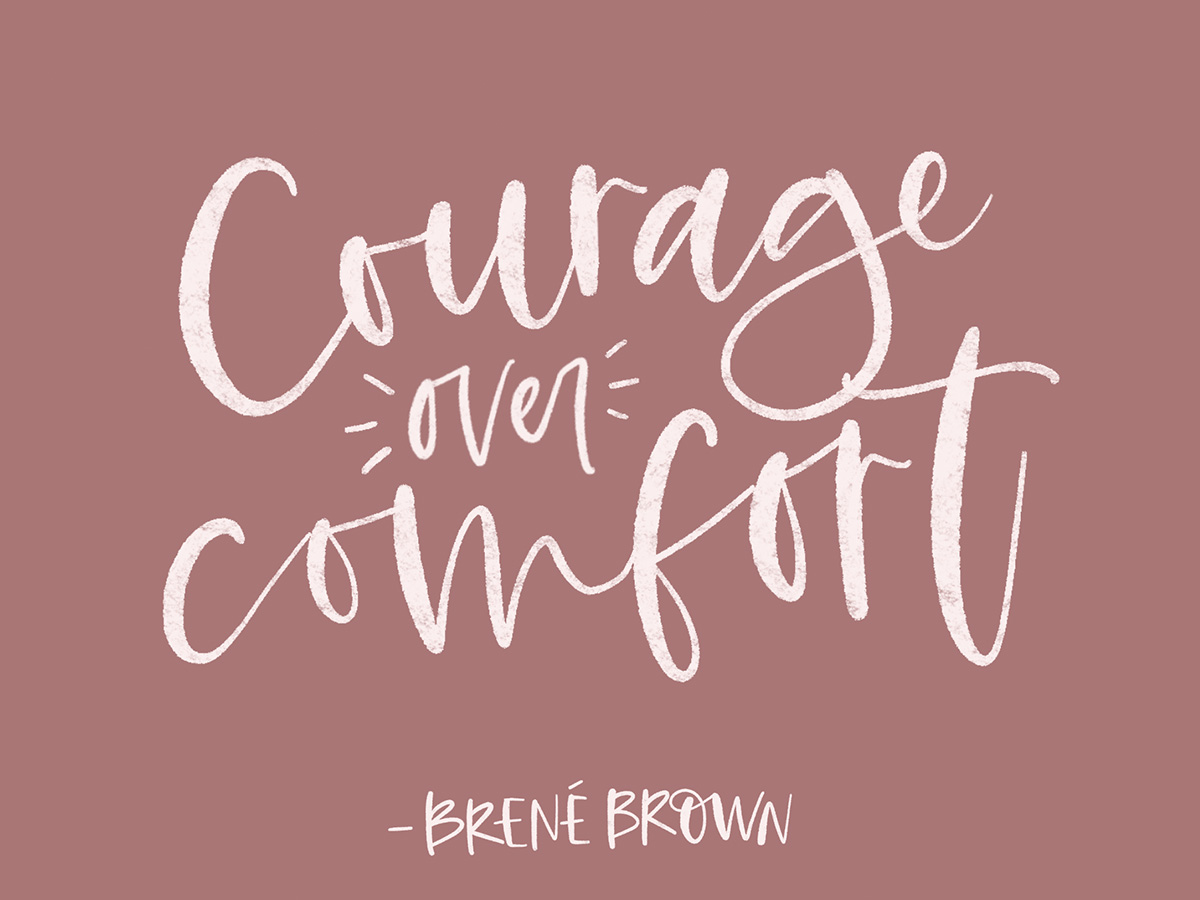 Courage
over
comfort
– BRENÉ BROWN